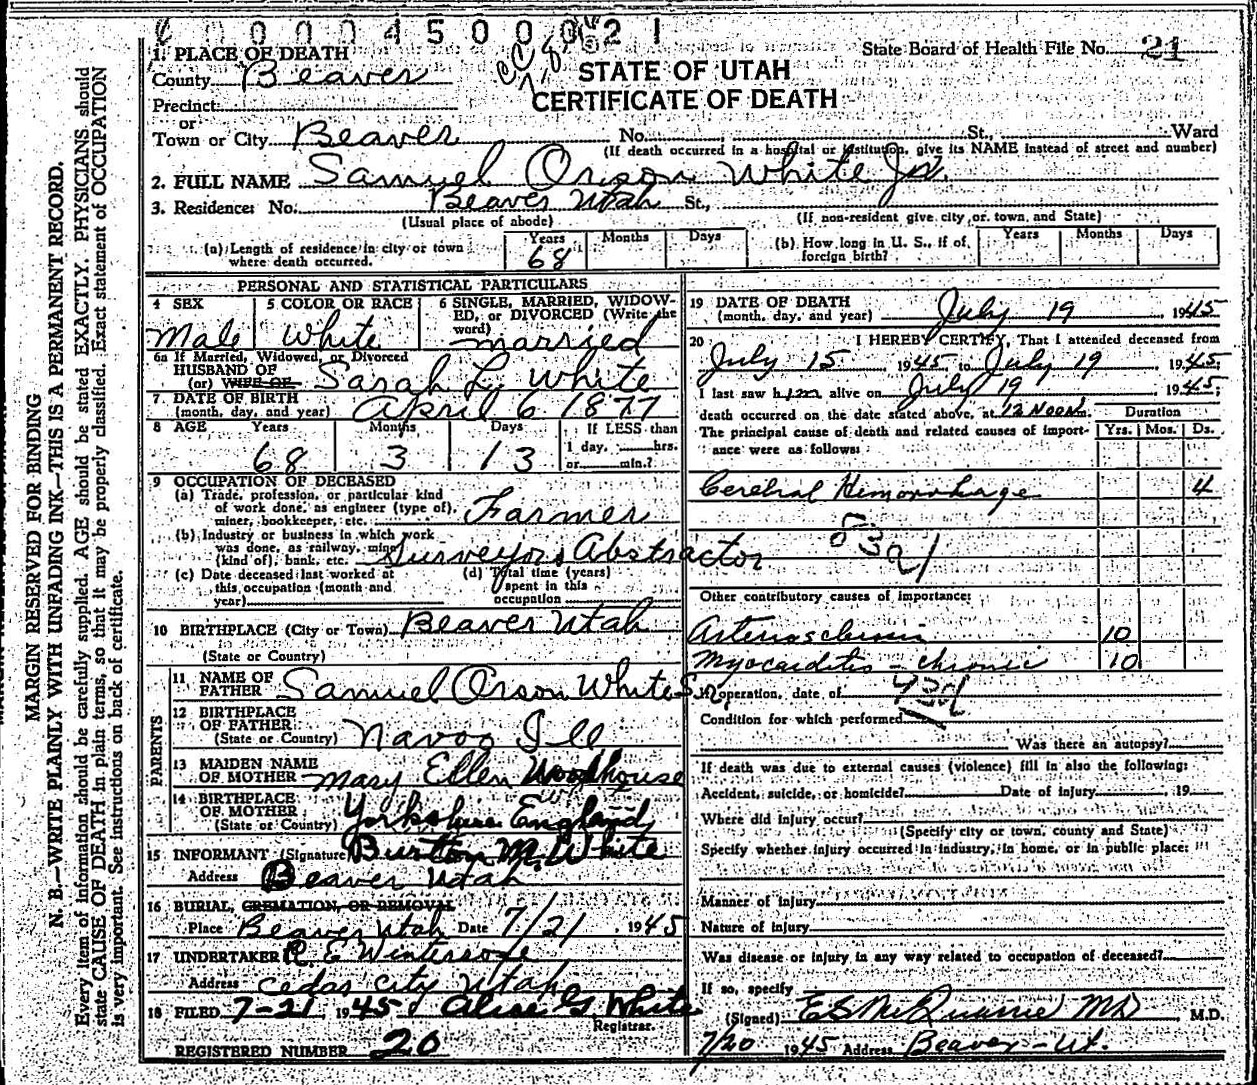 0 0 0 4 5 0 0 0 2 1
State Board of Health File No. 21
STATE OF UTAH
CERTIFICATE OF DEATH
1. PLACE OF DEATH
County Beaver
Precinct
or
Town or City Beaver No. St., Ward
(If death occurred in a hospital or institution, give its NAME instead of street and number)
2. FULL NAME Samuel Orson White Jr.
3. Residence: No. Beaver Utah St.,
(Usual place of abode) (If non-resident give city or town and State)
(a) Length of residence in city or town where death occurred. Years 68 Months Days
(b) How long in U. S., if of foreign birth? Years Months Days
PERSONAL AND STATISTICAL PARTICULARS
4 SEX Male
5 COLOR OR RACE White
6 SINGLE, MARRIED, WIDOWED, or DIVORCED (Write the word) married
6a If Married, Widowed, or Divorced
HUSBAND OF
(or) WIFE OF Sarah L. White
7 DATE OF BIRTH
(month, day, and year) April 6 1877
8 AGE Years 68 Months 3 Days 13 If LESS than 1 day, hrs. or min.?
9 OCCUPATION OF DECEASED
(a) Trade, profession, or particular kind
of work done, as engineer (type of),
miner, bookkeeper, etc. Farmer
(b) Industry or business in which work
was done, as railway, mine
(kind of), bank, etc. Surveyor & Abstractor
(c) Date deceased last worked at
this occupation (month and
year)
(d) Total time (years)
spent in this
occupation
10 BIRTHPLACE (City or Town) Beaver Utah
(State or Country)
PARENTS
11 NAME OF
FATHER Samuel Orson White Sr.
12 BIRTHPLACE
OF FATHER
(State or Country) Navoo Ill
13 MAIDEN NAME
OF MOTHER Mary Ellen Woodhouse
14 BIRTHPLACE
OF MOTHER
(State or Country) Yorkshire England
15 INFORMANT (Signature) Burton M. White
Address Beaver Utah
16 BURIAL, CREMATION, OR REMOVAL
Place Beaver Utah Date 7/21 1945
17 UNDERTAKER R. E Winterrose
Address Cedar City Utah
18 FILED 7-21 1945 Alise G. White
Registrar.
REGISTERED NUMBER 20
19 DATE OF DEATH
(month, day, and year) July 19 1945
20 I HEREBY CERTIFY, That I attended deceased from
July 15 1945 to July 19 1945
I last saw him alive on July 19 1945;
death occurred on the date stated above, at 12 Noon m.
The principal cause of death and related causes of importance were as follows:
Duration
Yrs. Mos. Ds.
Cerebral Hemorrhage 4
83a1
Other contributory causes of importance:
Arteriosclerosis 10
Myocarditis - chronic 10
If operation, date of
93d
Condition for which performed
Was there an autopsy?
If death was due to external causes (violence) fill in also the following:
Accident, suicide, or homicide? Date of injury 19
Where did injury occur?
(Specify city or town, county and State)
Specify whether injury occurred in industry, in home, or in public place:
Manner of injury
Nature of injury
Was disease or injury in any way related to occupation of deceased?
If so, specify
(Signed) E S McQuarrie MD M.D.
7/20 1945 Address Beaver - Ut.
MARGIN RESERVED FOR BINDING
N. B.—WRITE PLAINLY WITH UNFADING INK—THIS IS A PERMANENT RECORD.
Every item of information should be carefully supplied. AGE should be stated EXACTLY. PHYSICIANS should
state CAUSE OF DEATH in plain terms, so that it may be properly classified. Exact statement of OCCUPATION
is very important. See instructions on back of certificate.